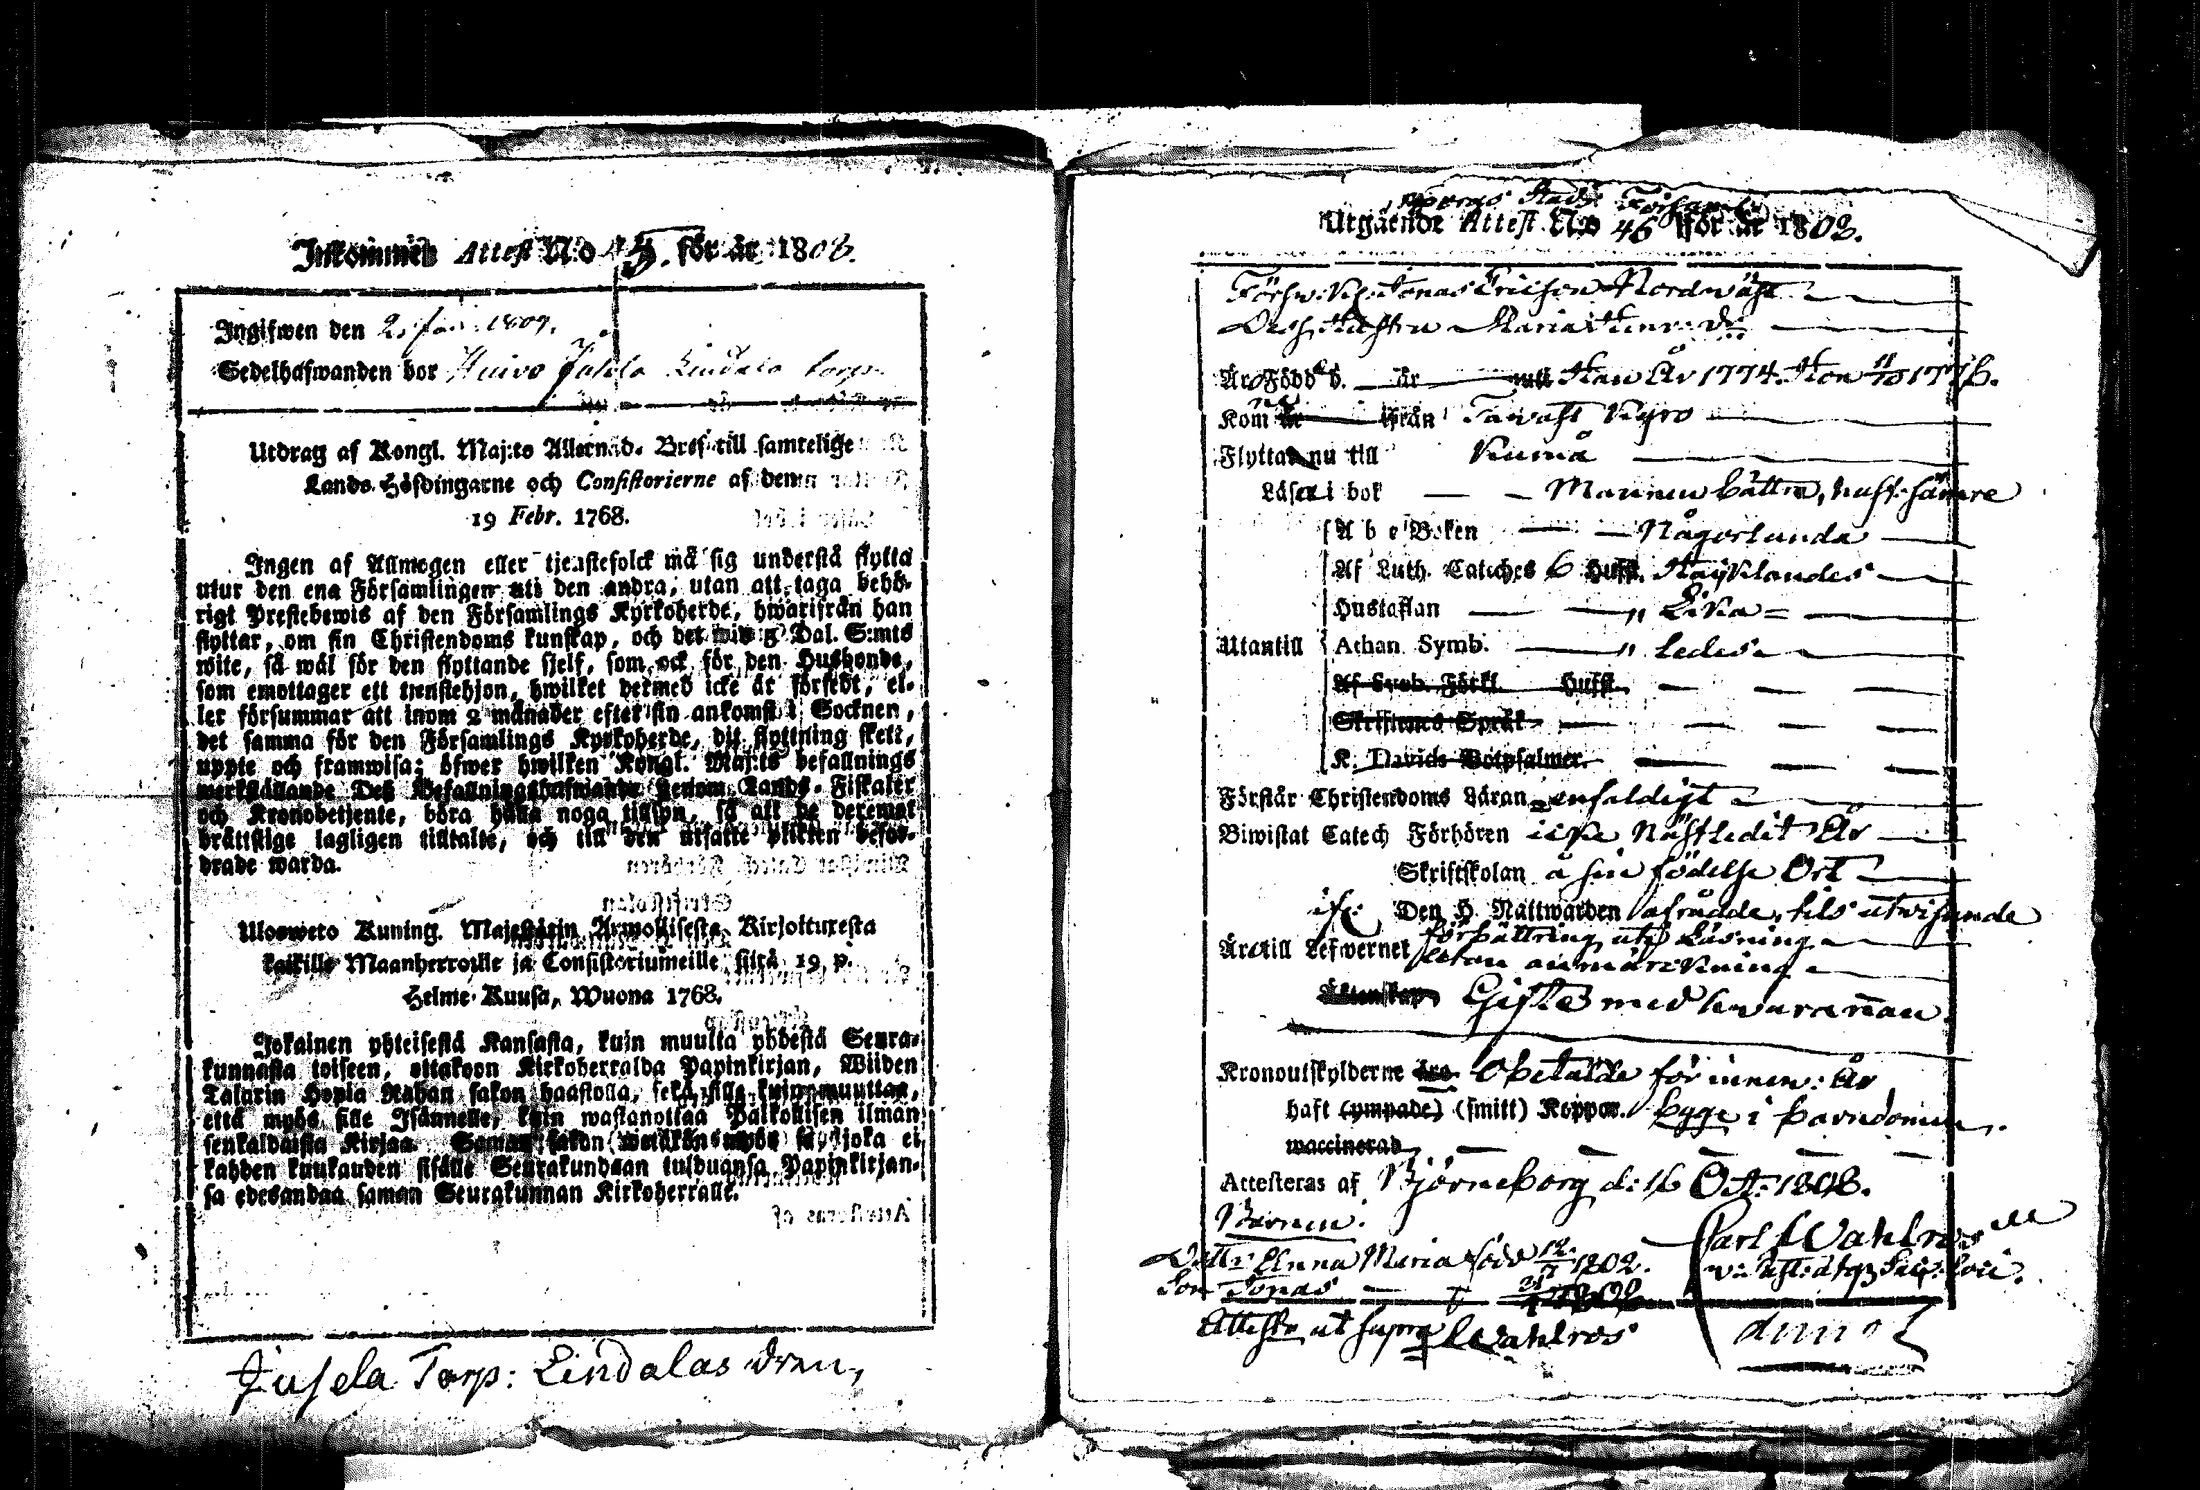 Inkommen Attest N:o för år 1808.
Ingifwen den 2 Jan: 1809.
Sedelhafwanden bor Jusela Lindala torp.
Utdrag af Kongl. Maj:ts Allernåd. Bref till samtelige
Lands-Höfdingarne och Consistorierne af den
19 Febr. 1768.
Ingen af Allmogen eller tjenstefolck må sig understå flytta
utur den ena Församlingen uti den andra, utan att taga behö-
rigt Prestebewis af den Församlings Kyrkoherde, hwarifrån han
flyttar, om sin Christendoms kunskap, och det wid 5 Dal. S:mts
wite, så wäl för den flyttande sjelf, som ock för den Husbonde,
som emottager ett tjenstehjon, hwilket dermed icke är försedt, el-
ler försummar att inom 2 månader efter sin ankomst i Socknen,
det samma för den Församlings Kyrkoherde, dit flyttning skett,
uppte och framwisa; öfwer hwilken Kongl. Maj:ts befallnings
werkställande Deß Befallningshafwande genom Lands-Fiskaler
och Kronobetjente, böra hålla noga tillsyn, så att de deremot
bråttslige lagligen tilltalte, och till den utsatte plikten beför-
drade warda.
Ulosweto Kuning. Majestätin Armollisesta Kirjoituxesta
kaikille Maanherroille ja Consistoriumeille siltä 19 p.
Helme-Kuusa, Wuona 1768.
Jokainen yhteisestä Kansasta, kuin muulta yhdestä Seura-
kunnasta toiseen, ottakoon Kirkoherralda Papinkirjan, Wiiden
Talarin Hopia Rahan sakon haastolla, sekä sille kuin muuttaa,
että myös sille Isännelle, kuin wastanottaa Palkollisen ilman
senkaldaista Kirjaa. Saman sakon wetäkön myös se, joka ei
kahden kuukauden sisälle Seurakundaan tulduansa Papinkirjan-
sa edesandaa saman Seurakunnan Kirkoherralle.
Jusela Torp: Lindalas dren,
Utgående Attest N:o 46 för år 1808.
Jonas Ericson Nordwäst
Dess Hustru Maria Henr: dr
Äro Född d. år uti Han År 1774. Hon 11/10 1776.
Kom år ifrån Tavast Kyro
Flytta nu till Kumå
Läsa i bok Mannen bättre, hust: sämre
Utantill
A b c Boken Någorlunda
Af Luth. Cateches 6 Hufst.
Hustaflan " Lika =
Athan Symb. " ledes
Af Symb. Förkl. Hufst.
Skriftenes Språk
K. Davids Botpsalmer.
Förstår Christendoms Läran enfaldigt
Biwistat Catech Förhören icke Nästledit År
Skriftskolan å sin födelse Ort
Den H. Nattwarden afrådde, tils utwisande
förbättring uti Läsning
Äro till Lefwernet utan anmärckning
Äktenskap Gifte med hwarannan
Kronoutskylderne äro Obetalde för innew: År
haft (ympade) (smitt) Koppor. bägge i barndomen.
waccinerad
Attesteras af Björneborg d: 16 Oct: 1808.
Barnen:
Carl Wahlroos
Dottr Anna Maria född 12/7 1802.
Son Jonas
Attest ut supra Wahlroos